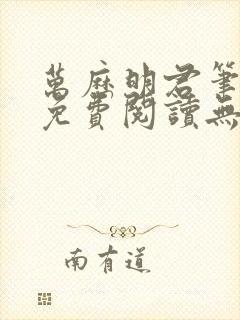 萬麻明君筆
免費閱讀無
南有道